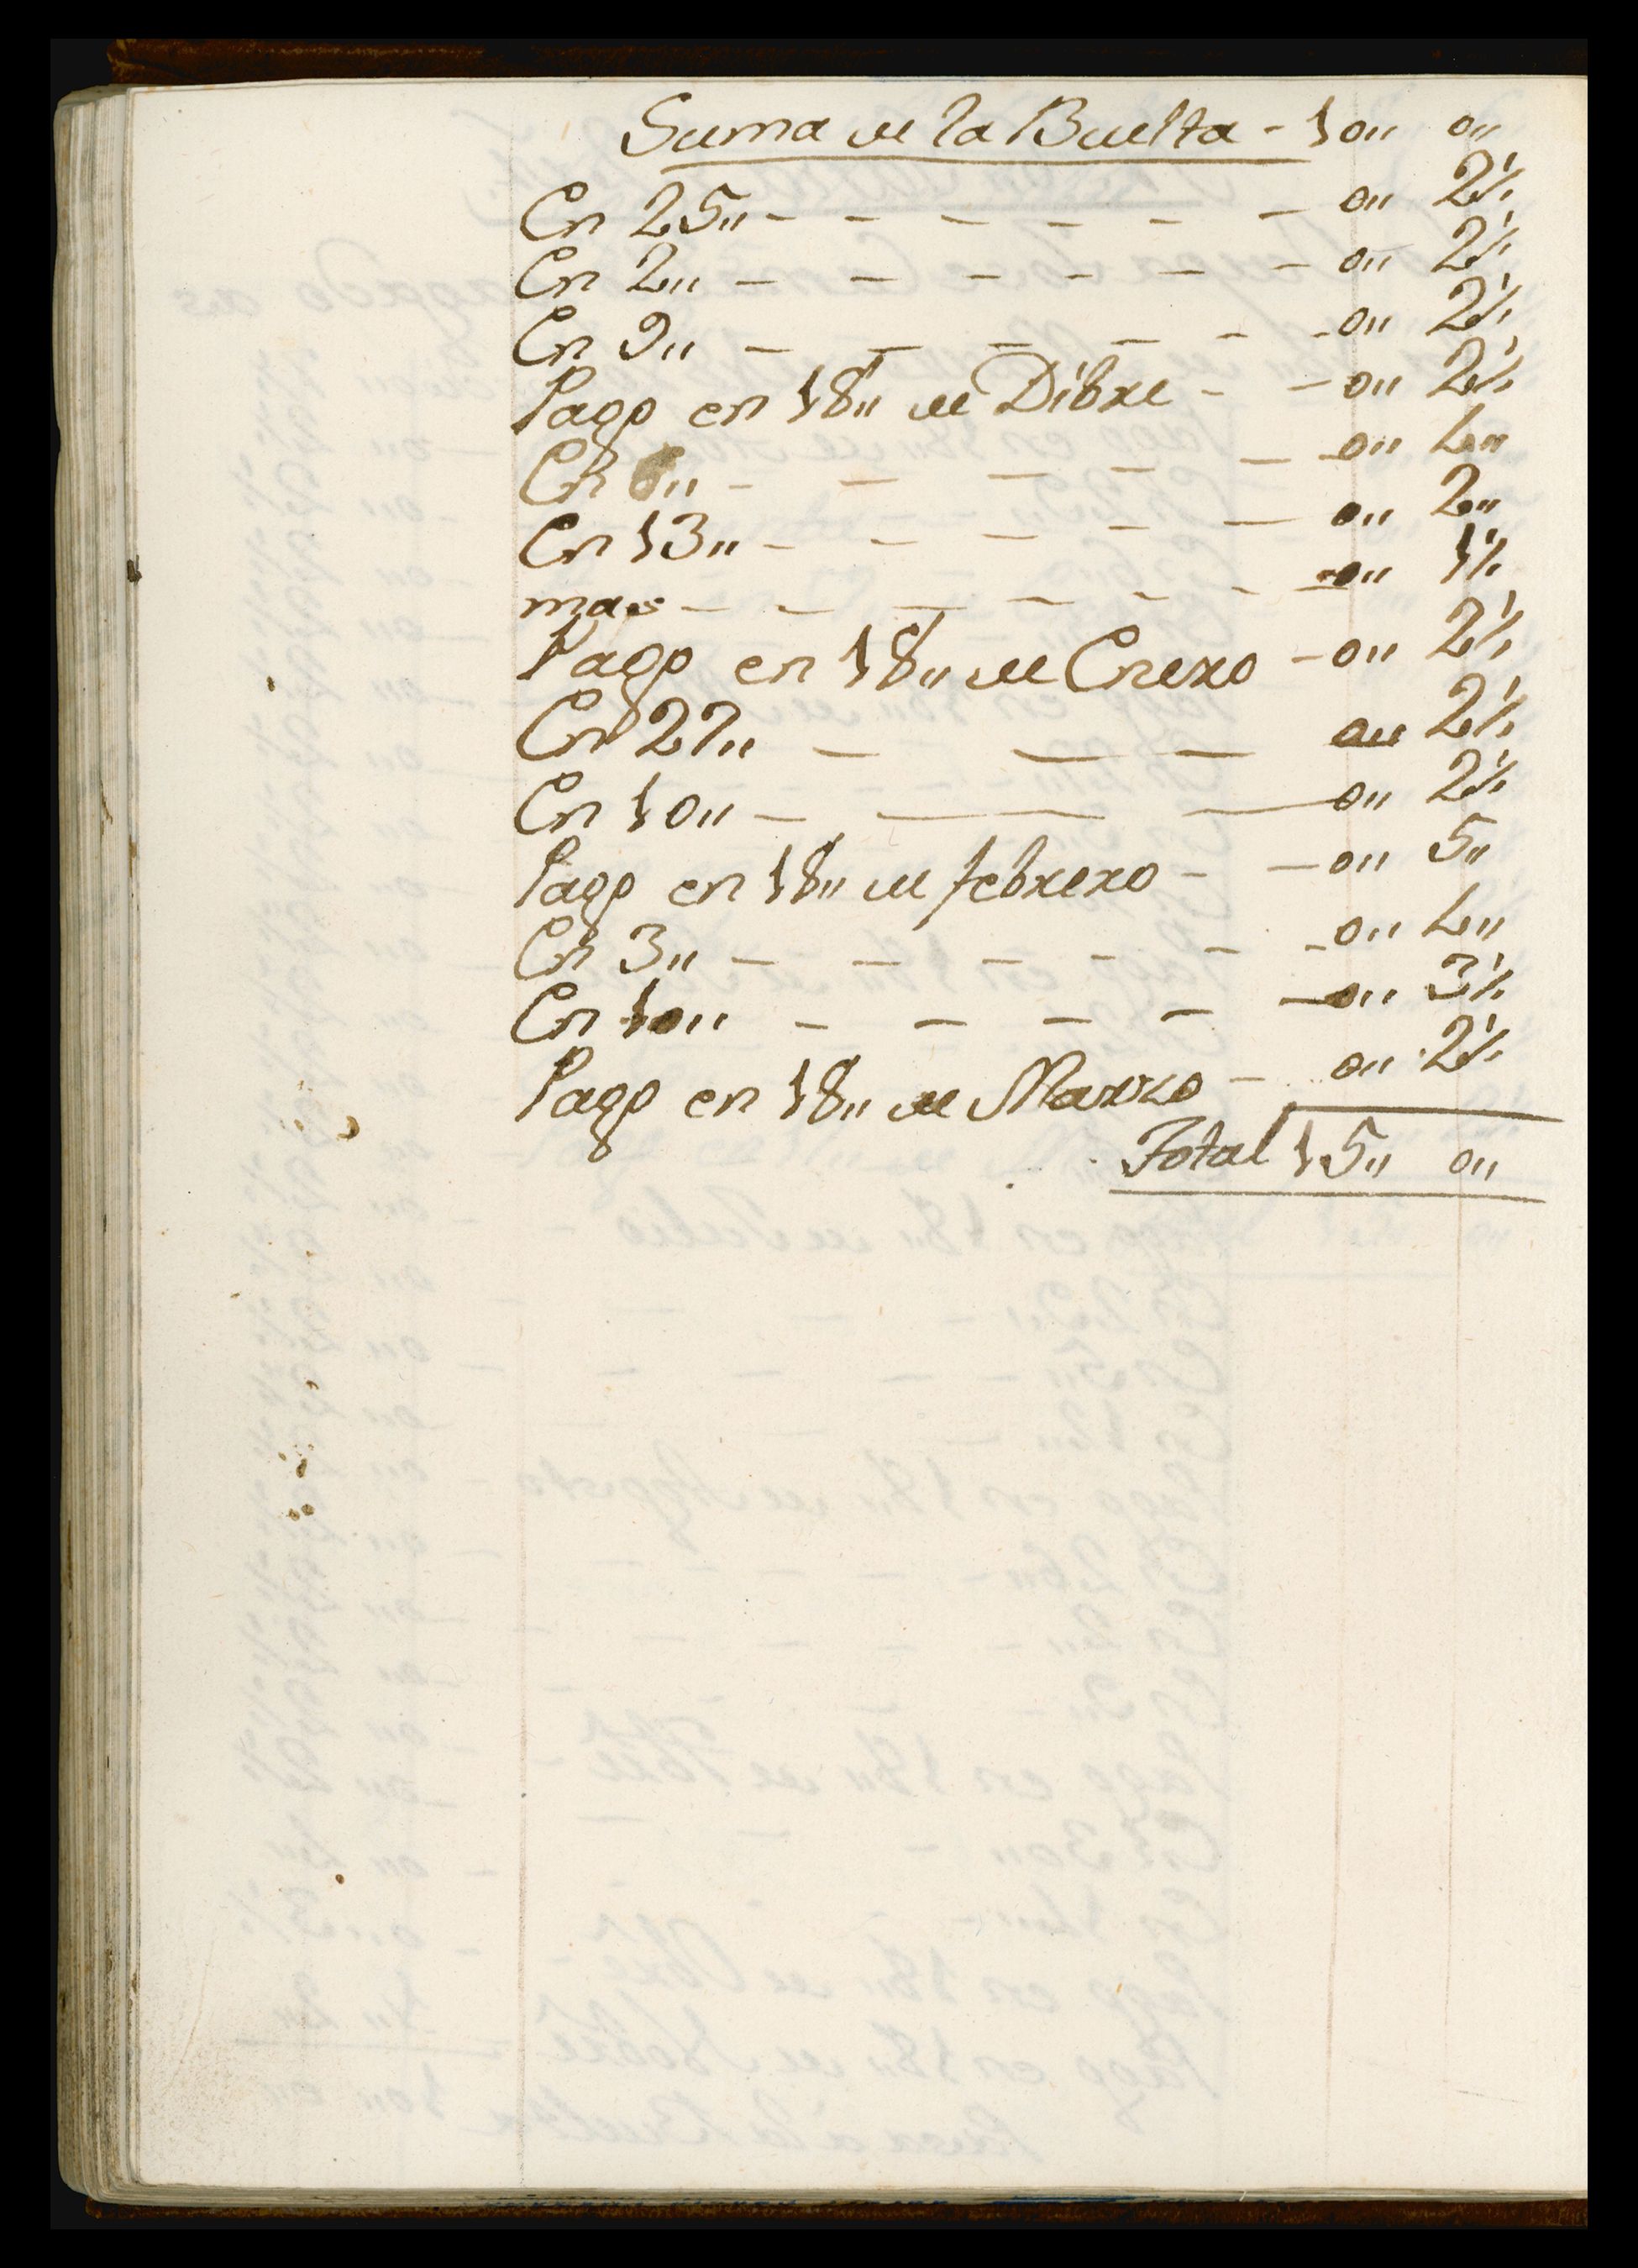 Suma de la Buelta - 10,, 0,,
En 25,, - - - - - - 0,, 2½
En 2,, - - - - - - 0,, 2½
En 9,, - - - - - - 0,, 2½
Pago en 18,, de Dibre - - 0,, 2½
En 6,, - - - - - - 0,, 4,,
En 13,, - - - - - 0,, 2,,
mas - - - - - - 0,, 1½
Pago en 18,, de Enero - 0,, 2½
En 27,, - - - 0,, 2½
En 10,, - - - 0,, 2½
Pago en 18,, de febrero - - 0,, 5,,
En 3,, - - - - - - 0,, 4,,
En 10,, - - - - - 0,, 3½
Pago en 18,, de Marzo - 0,, 2½
Total 15,, 0,,